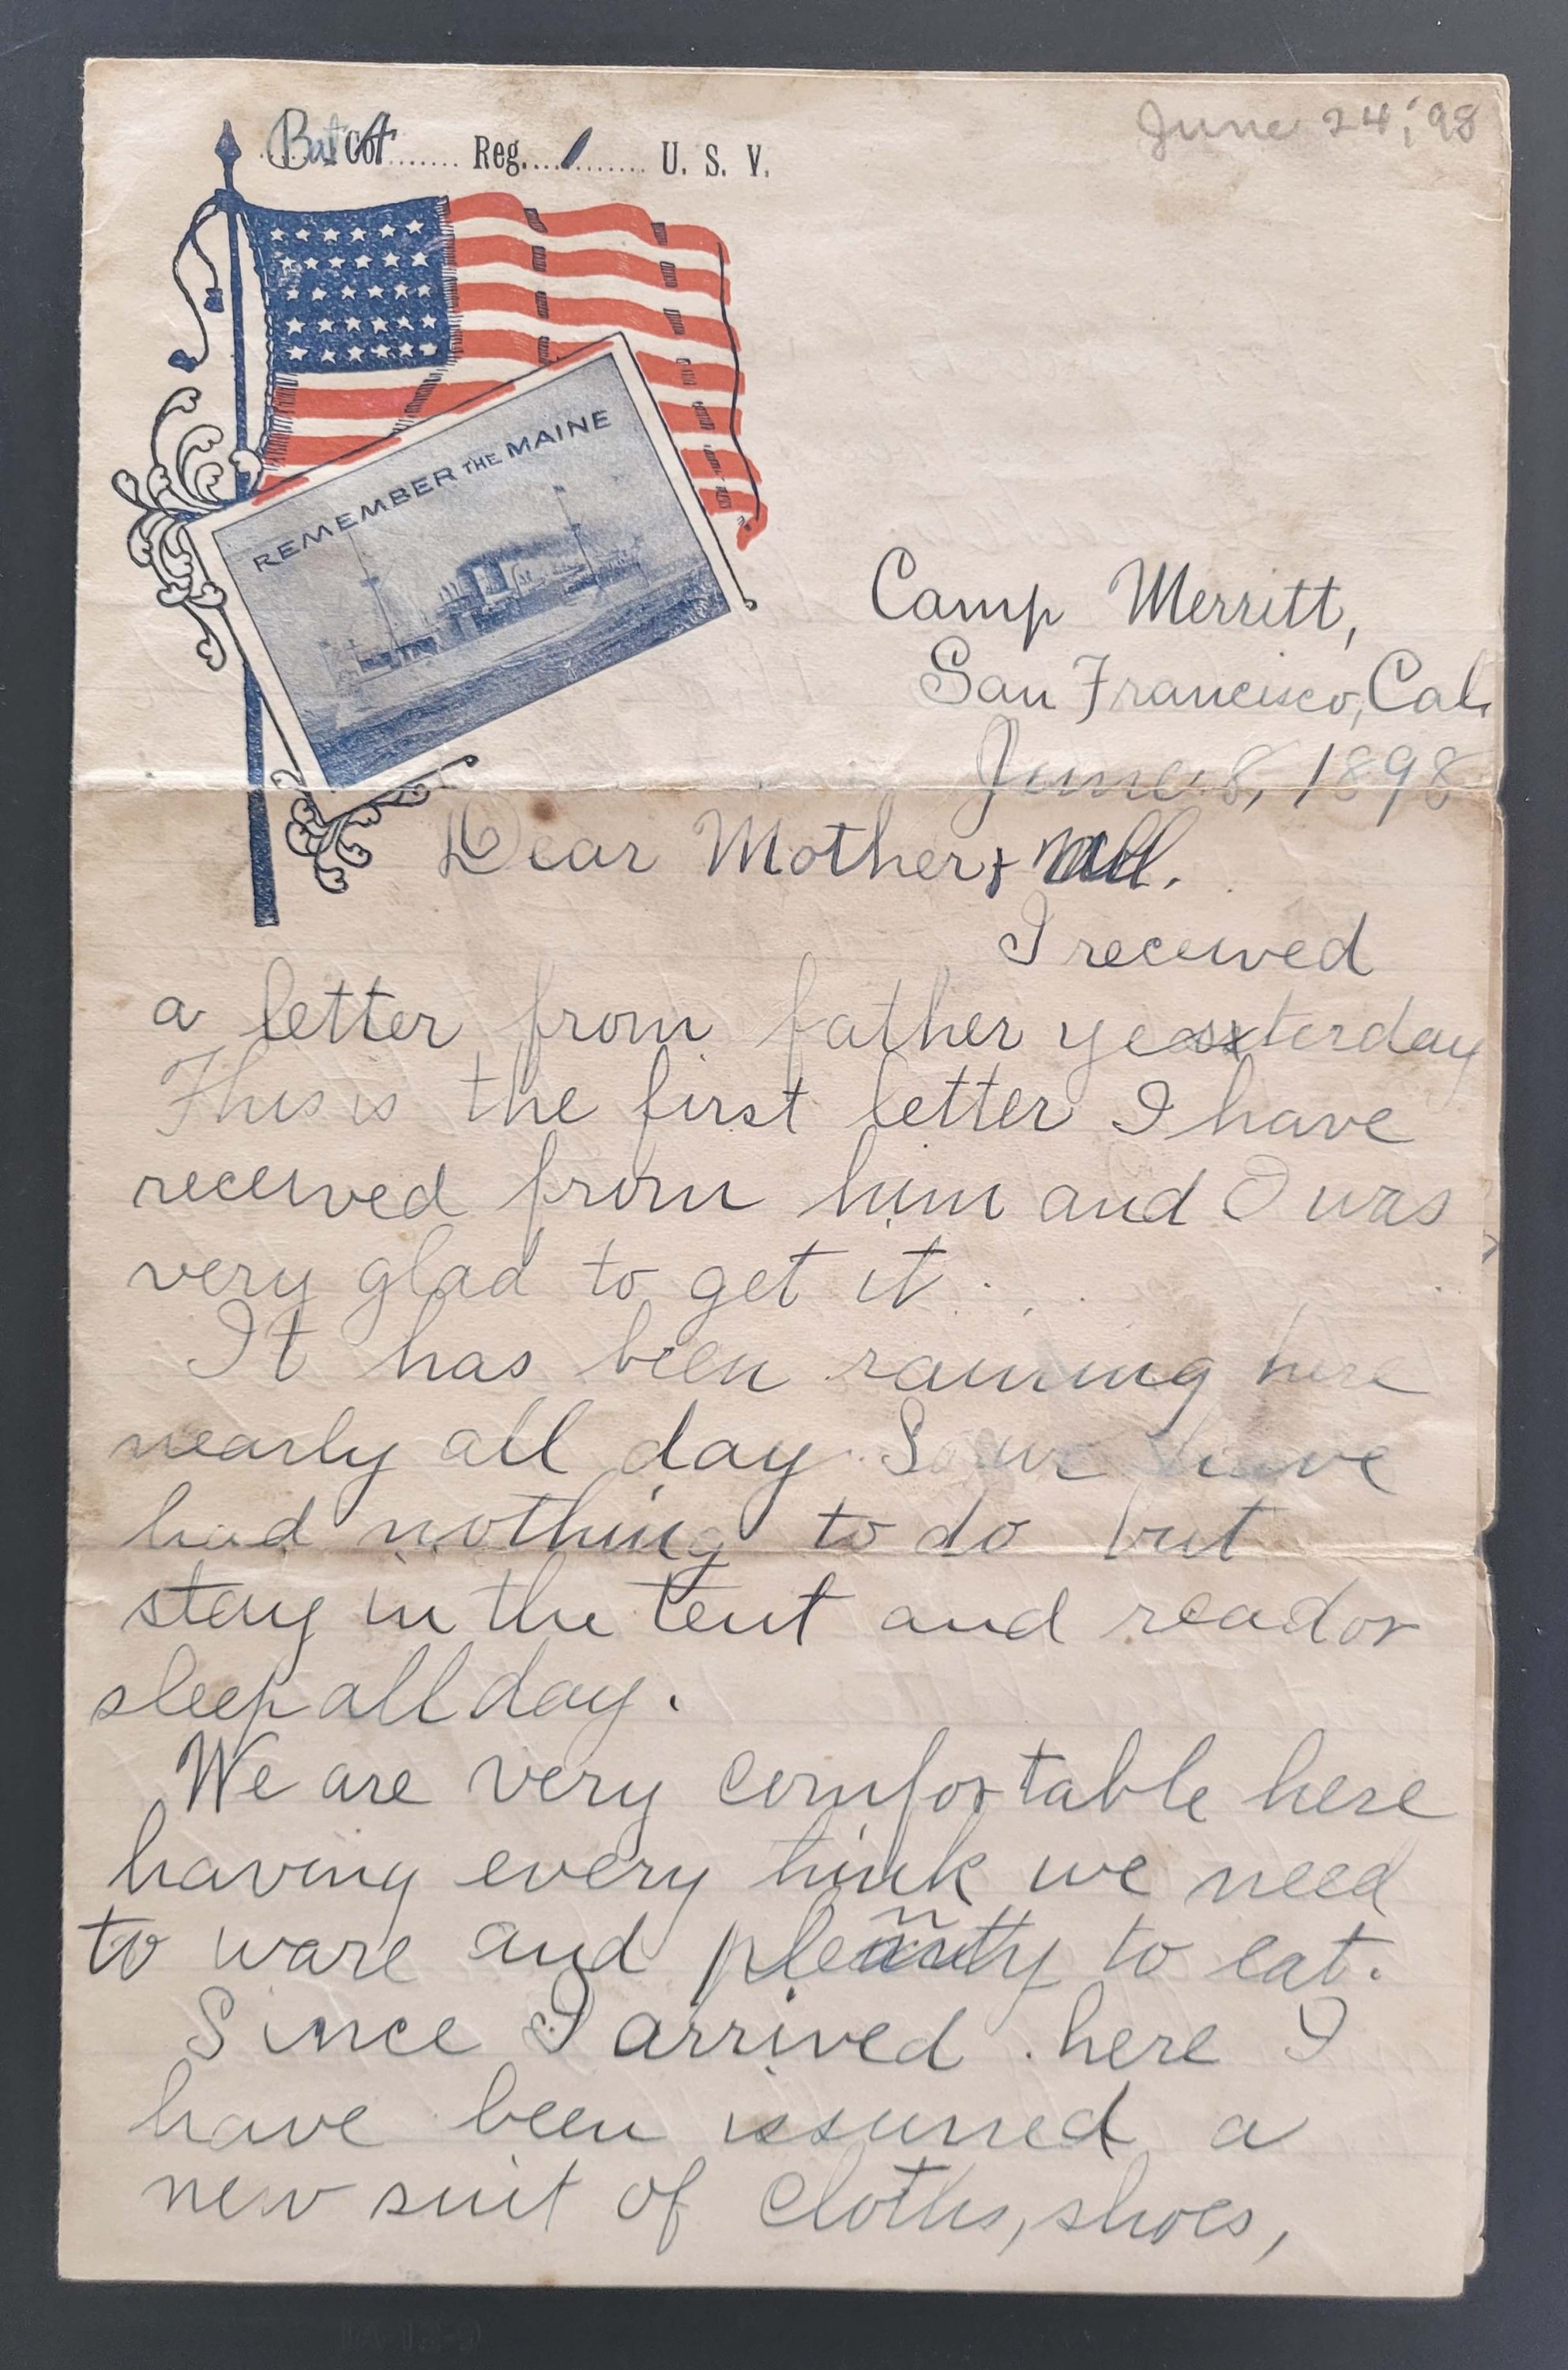 June 24, '98
Bat Co A Reg. 1 U. S. V.
REMEMBER THE MAINE
Camp Merritt,
San Francisco, Cal.
June 8, 1898
Dear Mother & all.
I received
a letter from father yesterday
This is the first letter I have
received from him and I was
very glad to get it.
It has been raining here
nearly all day. So we have
had nothing to do but
stay in the tent and read or
sleep all day.
We are very comfortable here
having every think we need
to ware and plenty to eat.
Since I arrived here I
have been issured a
new suit of cloths, shoes,